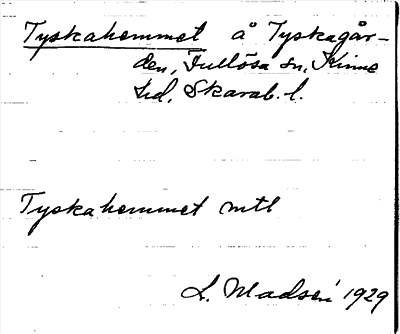 Tyskahemmet å Tyskagår-
den, Fullösa sn, Kinne
hd, Skarab. l.
Tyskahemmet mtl
L. Madsén 1929